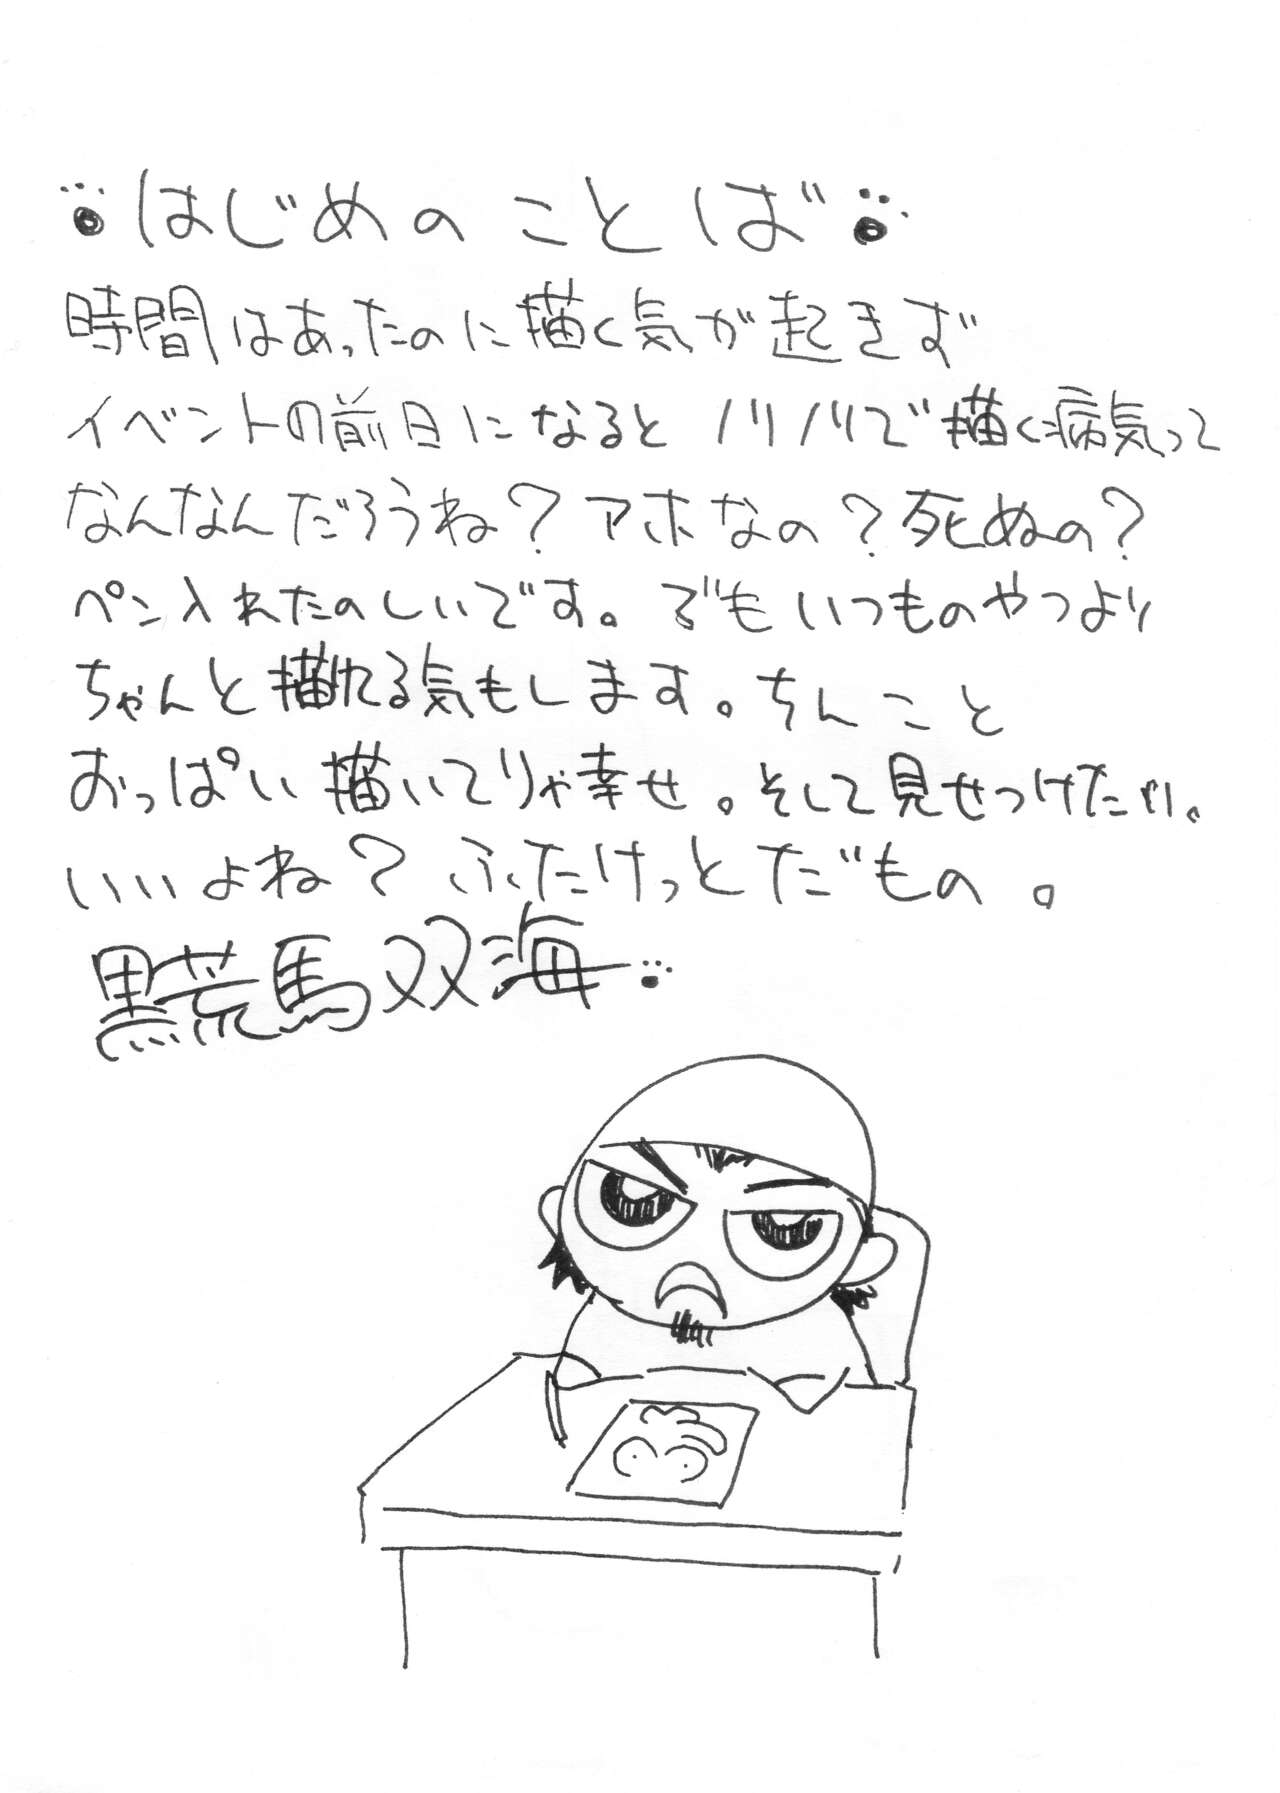 はじめのことば
時間はあったのに描く気が起きず
イベントの前日になるとノリノリで描く病気って
なんなんだろうね？アホなの？死ぬの？
ペン入れたのしいです。でもいつものやつより
ちゃんと描ける気もします。ちんこと
おっぱい描いてりゃ幸せ。そして見せつけたい。
いいよね？ふたけっとだもの。
黒荒馬双海